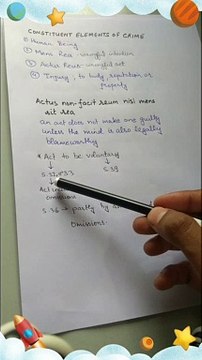 CONSTITUENT ELEMENTS OF CRIME
① Human Being
② Mens Rea - wrongful intention
③ Actus Reus - wrongful act
④ Injury, to body, reputation or
property
Actus non-facit reum nisi mens
sit rea
an act does not make one guilty
unless the mind is also legally
blameworthy
* Act to be voluntary
↓ ↓
S.32, S.33 S.39
↓
Act
omissions
S.36 → partly by
omissions.